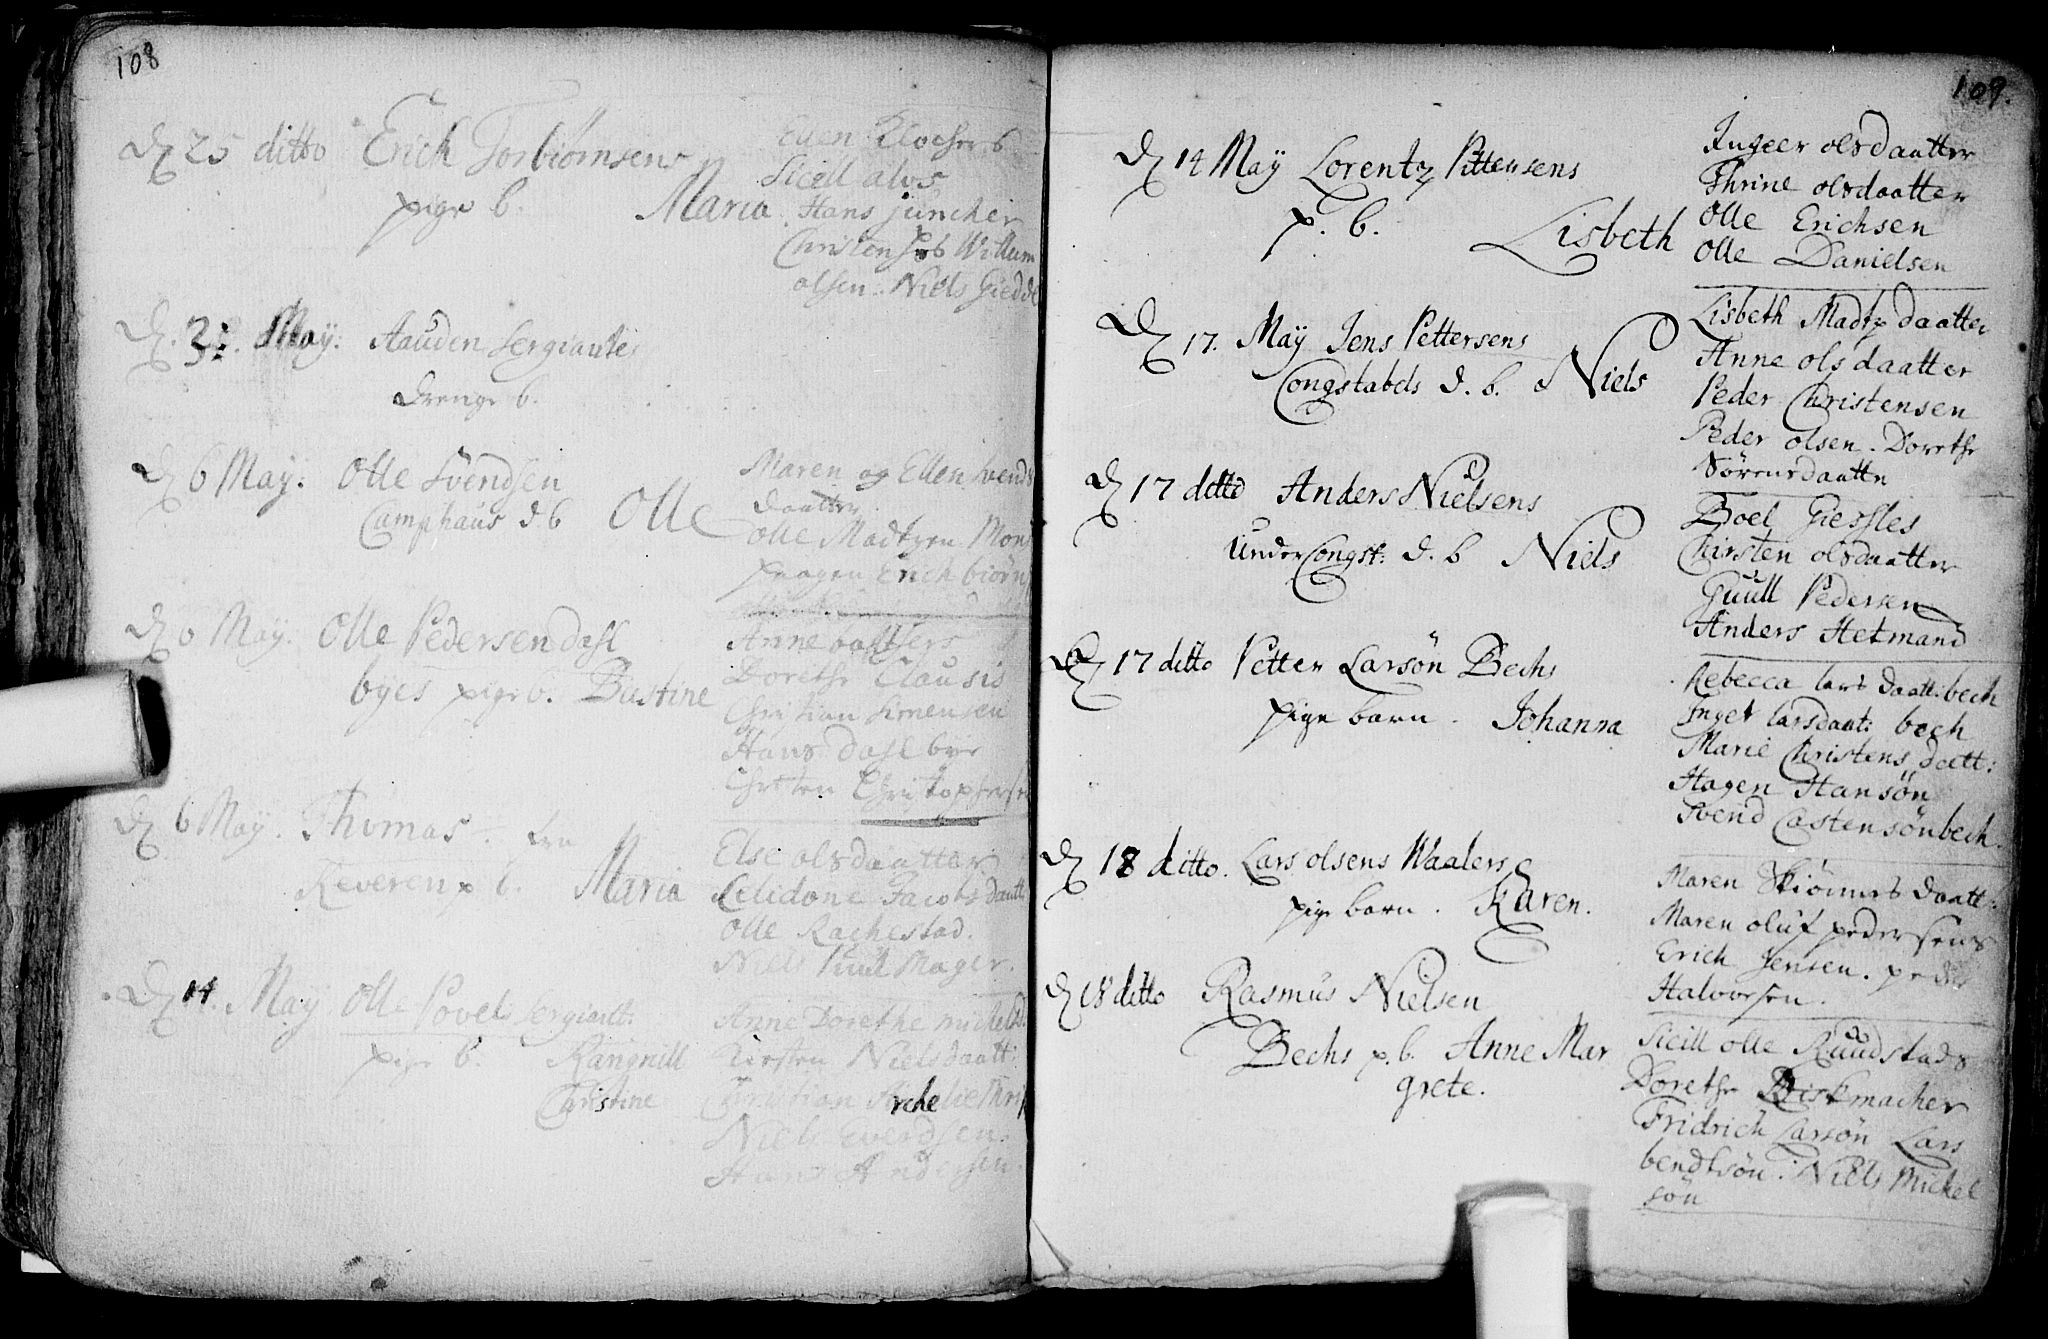 108
D 25 ditto Erich Torbiörnsens
pige b. Maria
Even Klochers
Sicell alvs
Hans juncher
Christen Willum
olsen. Niels Giedde
D. May: Aauden Sergiantes
Drenge b.
D 6 May: Olle Svendsen
Camphaus d b Olle
Maren og Ellen Svends
daatter
olle Madtzen
Erich biörn
D 6 May. Olle Pedersen dahl
byes pige b. Bastine
Anne
Dorethe Clausis
Christian Simensen
Hans dahl bye
Christen Christophersen
D 6 May. Thomas
Reveren p b. Maria
Else olsdaatter
Celidone Jacobs daatt
olle Rachestad.
Niels Puul Mager.
D 14. May Olle Povels Sergiantt:
pige b. Rangnill
Christine
Anne Dorethe michels
Kirsten Nielsdaatt:
Christian
Niels Everdsen.
Hans Andersen.
109.
D 14 May Lorentz Pittersens
p. b. Lisbeth
Ingeer olsdaatter
Thrine olsdaatter
Olle Erichsen
Olle Danielsen
D 17. May Jens Pettersens
Congstabels d. b. Niels
Lisbeth Madtz daatter
Anne olsdaatter
Peder Christensen
Peder olsen. Dorethe
Sörensdaatter
D 17 ditto Anders Nielsens
Under Congst: d. b Niels
Boel Giessles
Chirsten olsdaatter
Guull Pedersen
Anders Hetmand
D 17 ditto Petter Larsön Bechs
pige barn. Johanna
Rebecca lars daatt: bech
Inger larsdaat: bech
Marie Christens daatt:
Hagen Hansön
Svend Castensön bech.
D 18 ditto. Lars olsens Waalers
pige barn. Karen.
Maren Skiönnes daatt:
Maren oluf pedersens
Erich Jensen. peder
Halvorsen.
D 18 ditto Rasmus Nielsen
Bechs p. b. Anne Mar
grete.
Sicill olle Ruudstads
Dorethe Diskmacher
Fridrich Larsön Lars
bendtsön. Niels Michel
sön